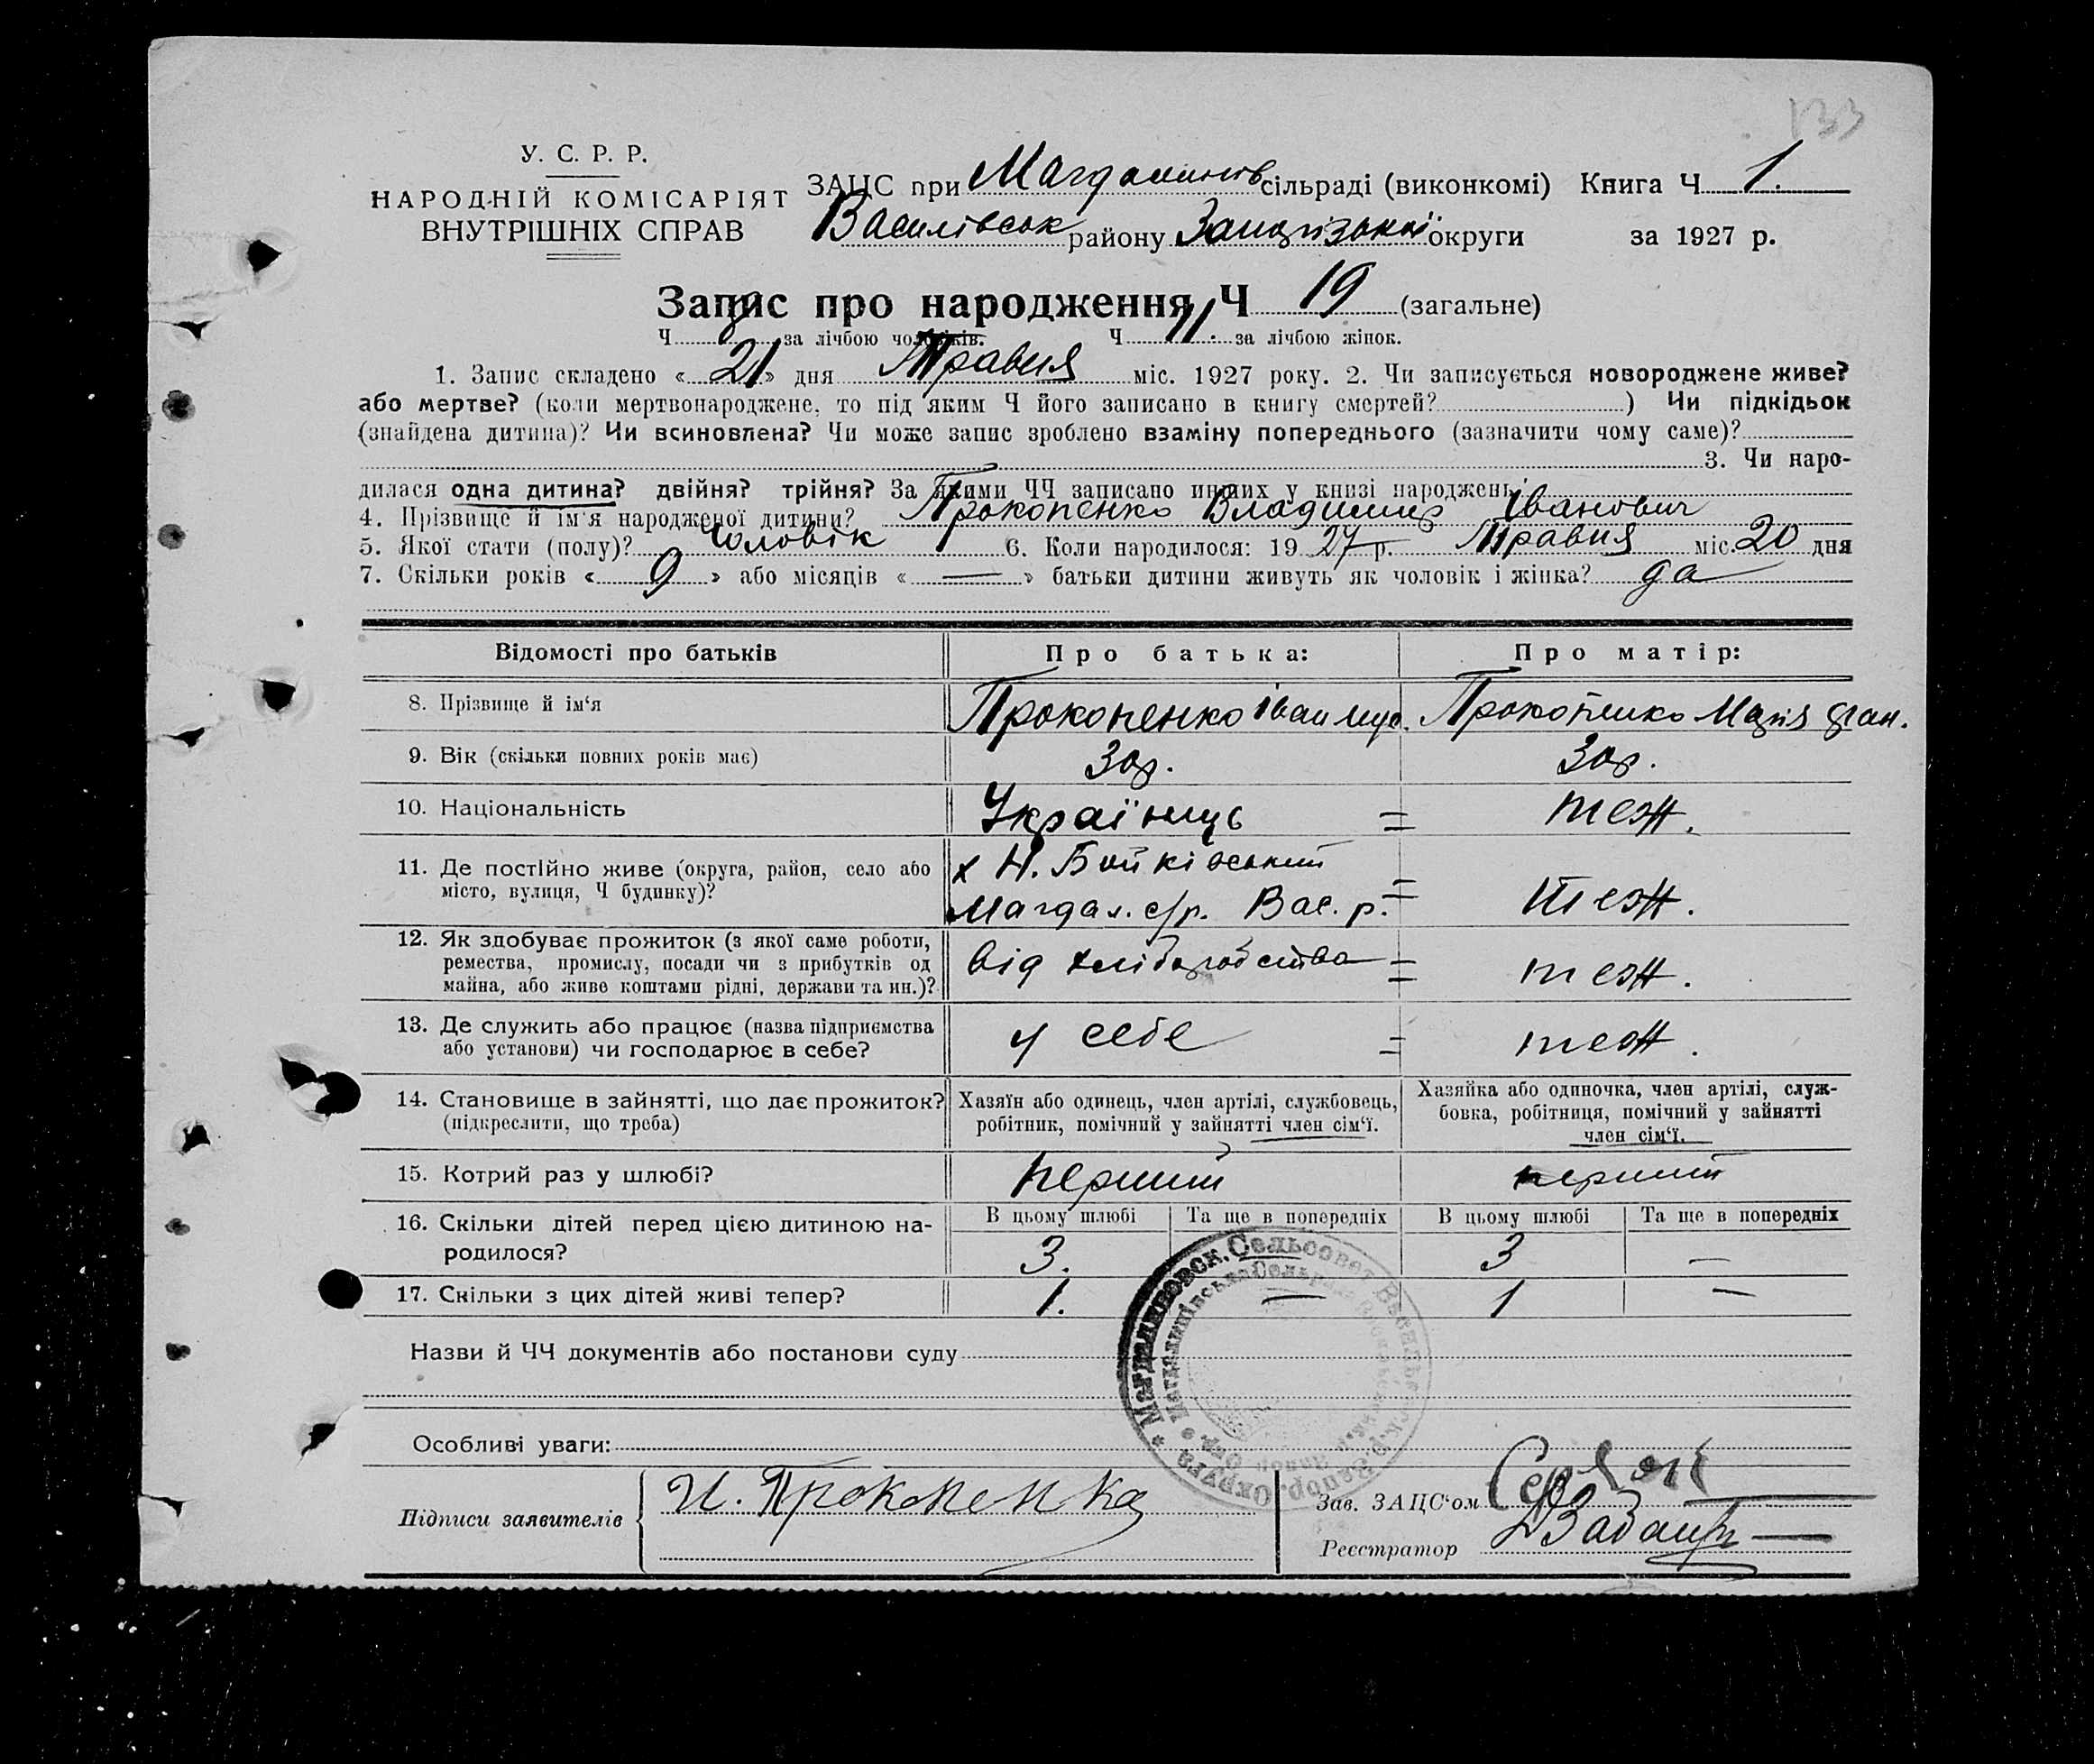 133
У. С. Р. Р.
НАРОДНІЙ КОМІСАРІЯТ
ВНУТРІШНІХ СПРАВ
ЗАЦС при Магдалинів сільраді (виконкомі) Книга Ч 1.
Василівськ району Запорізької округи за 1927 р.
Запис про народження Ч 19 (загальне)
Ч 8 за лічбою чоловіків. Ч 11. за лічбою жінок.
1. Запис складено « 21 » дня Травня міс. 1927 року. 2. Чи записується новороджене живе?
або мертве? (коли мертвонароджене, то під яким Ч його записано в книгу смертей? ) Чи підкідьок
(знайдена дитина)? Чи всиновлена? Чи може запис зроблено взаміну попереднього (зазначити чому саме)?
3. Чи наро-
дилася одна дитина? двійня? трійня? За якими ЧЧ записано инших у книзі народжень?
4. Прізвище й ім'я народженої дитини? Прокопенко Владимир Іванович
5. Якої стати (полу)? Чоловік 6. Коли народилося: 19 27 р. Травня міс. 20 дня
7. Скільки років « 9 » або місяців « — » батьки дитини живуть як чоловік і жінка? да
Відомості про батьків Про батька: Про матір:
8. Прізвище й ім'я Прокопенко Іван Прокопенко Марія
9. Вік (скільки повних років має) 30р. 30р.
10. Національність Українець = теж.
11. Де постійно живе (округа, район, село або х Н. Бойківський
місто, вулиця, Ч будинку)? Магдал. с/р. Вас. р. = теж.
12. Як здобуває прожиток (з якої саме роботи,
ремества, промислу, посади чи з прибутків од від хліборобства = теж.
майна, або живе коштами рідні, держави та ин.)?
13. Де служить або працює (назва підприємства у себе = теж.
або установи) чи господарює в себе?
14. Становище в зайнятті, що дає прожиток? Хазяїн або одинець, член артілі, службовець, Хазяйка або одиночка, член артілі, служ-
(підкреслити, що треба) робітник, помічний у зайнятті член сім'ї. бовка, робітниця, помічний у зайнятті
член сім'ї.
15. Котрий раз у шлюбі? перший перший
16. Скільки дітей перед цією дитиною на- В цьому шлюбі Та ще в попередніх В цьому шлюбі Та ще в попередніх
родилося? 3. — 3 —
17. Скільки з цих дітей живі тепер? 1. — 1 —
Назви й ЧЧ документів або постанови суду
* Магдалиновск. Сельсовет Васильевск. р. Запор. Округа
Магдалинівська Сельрада
Особливі уваги:
Підписи заявителів И. Прокопенко
Зав. ЗАЦС'ом
Реєстратор